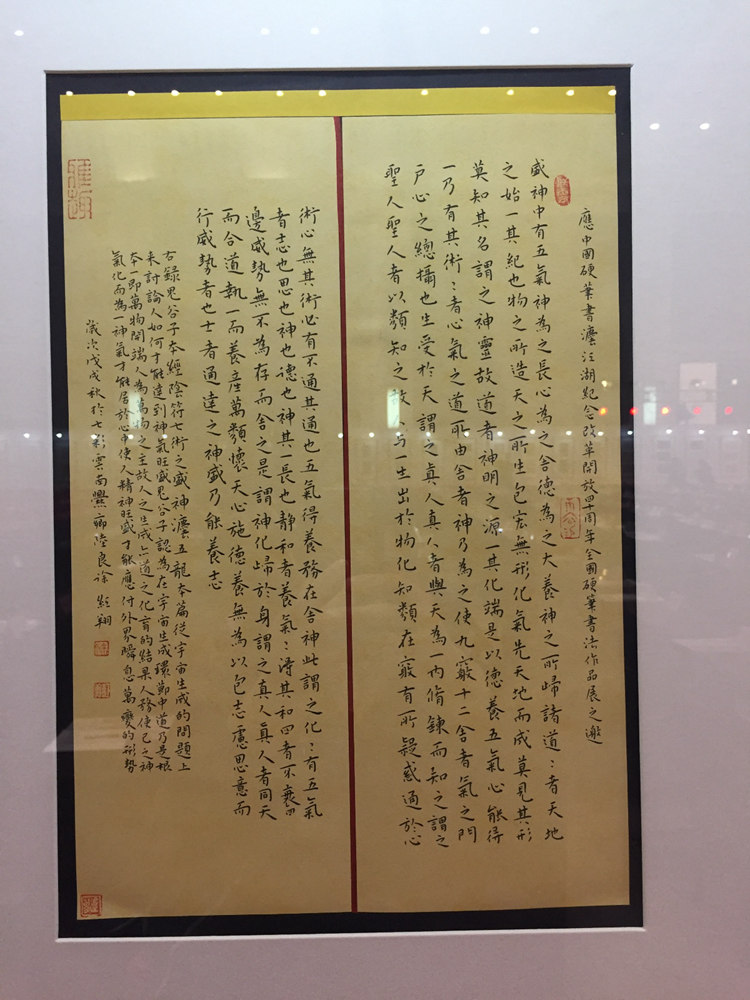 應中國硬筆書灋江湖紀念改革開放四十周年全國硬筆書法作品展之邀
盛神中有五氣神為之長心為之舍德為之大養神之所歸諸道：者天地
之始一其紀也物之所造天之所生包宏無形化氣先天地而成莫見其形
莫知其名謂之神靈故道者神明之源一其化端是以德養五氣心能得
一乃有其術：者心氣之道所由舍者神乃為之使九竅十二舍者氣之門
戶心之總攝也生受於天謂之真人真人者與天為一內脩鍊而知之謂之
聖人聖人者以類知之故人与一生出於物化知類在竅有所疑惑通於心
術心無其術必有不通其通也五氣得養務在舍神此謂之化：有五氣
者志也思也神也德也神其一長也静和者養氣：得其和四者不衰四
邊威勢無不為存而舍之是謂神化歸於身謂之真人真人者同天
而合道執一而養產萬類懷天心施德養無為以包志慮思意而
行威勢者也士者通達之神盛乃能養志
右錄鬼谷子本經陰符七術之盛神灋五龍本篇從宇宙生成的問題上
来討論人如何才能達到神氣旺盛鬼谷子認為在宇宙生成環節中道乃是根
本一即萬物開端人為萬物之主故人之生成亦道之化育的結果人務使己之神
氣化而為一神氣才能居於心中使人精神旺盛才能應付外界瞬息萬變的形勢
歲次戊戌秋於七彩雲南爨鄉陸良徐彩翔